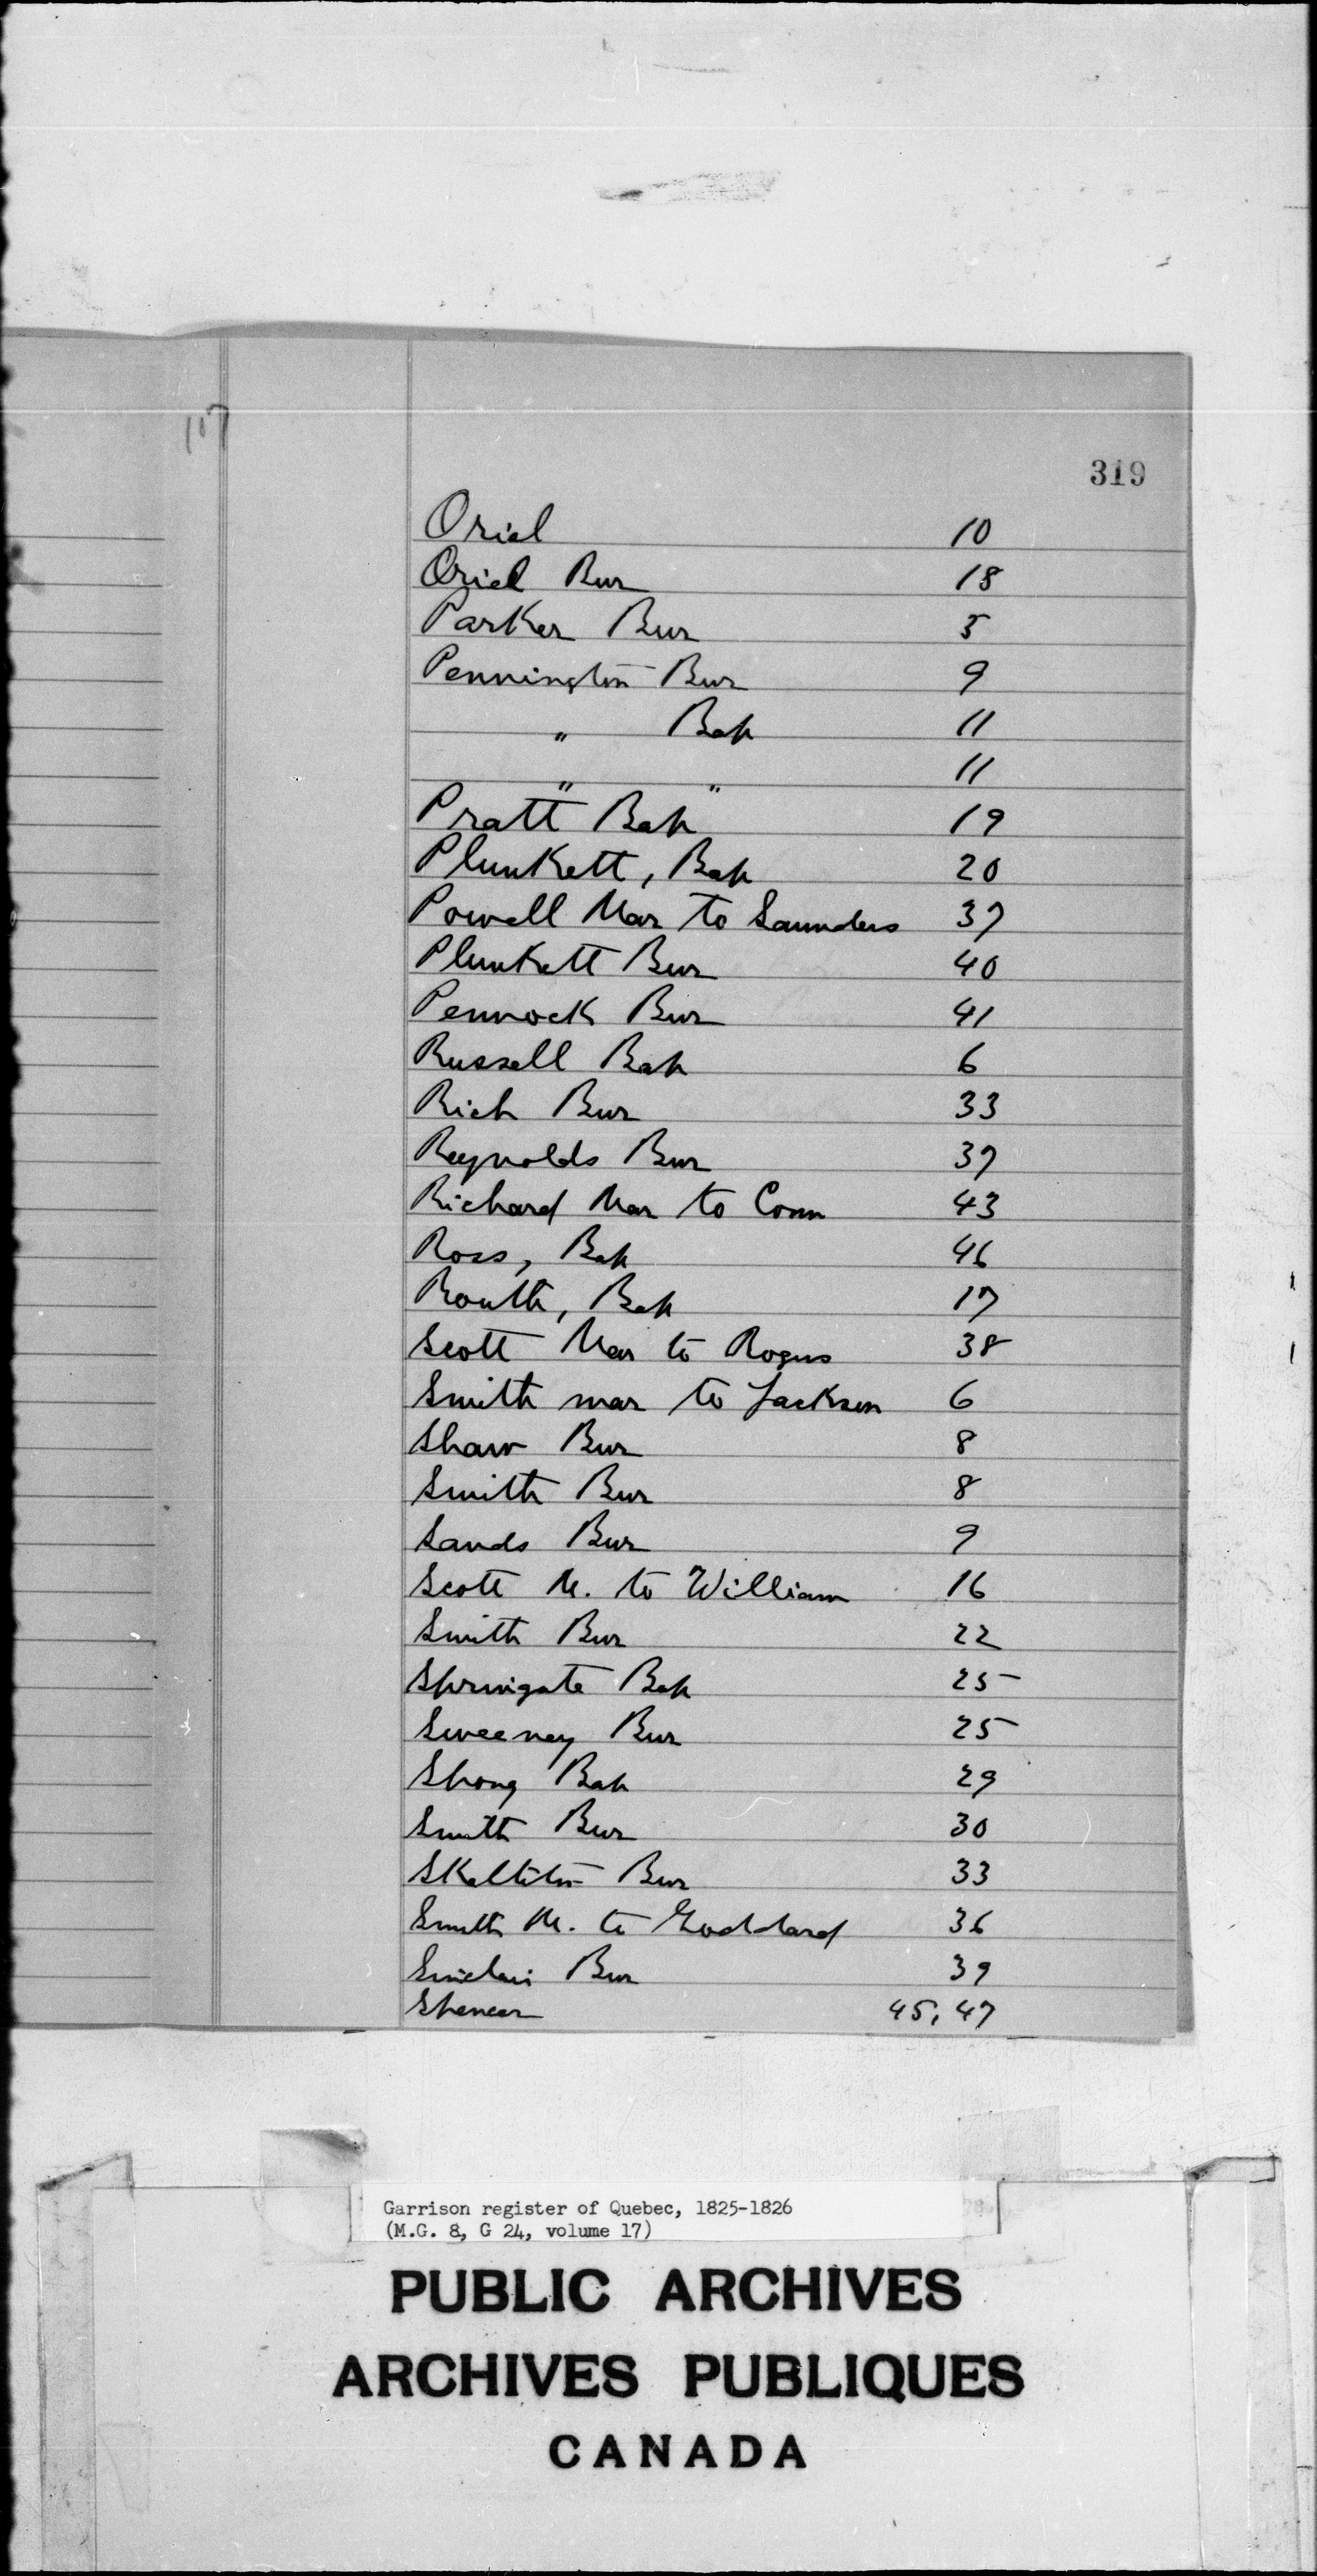 107
319
Oriel 10
Oriel Bur 18
Parker Bur 5
Pennington Bur 9
" Bap 11
" " 11
Pratt Bap 19
Plunkett, Bap 20
Powell Mar to Saunders 37
Plunkett Bur 40
Pennock Bur 41
Russell Bap 6
Rich Bur 33
Reynolds Bur 37
Richard Mar to Conn 43
Ross, Bap 46
Routh, Bap 17
Scott Mar to Rogers 38
Smith mar to Jackson 6
Shaw Bur 8
Smith Bur 8
Sands Bur 9
Scott M. to William 16
Smith Bur 22
Springate Bap 25
Sweeney Bur 25
Strong Bap 29
Smith Bur 30
Skelliton Bur 33
Smith M. to Goddard 36
Sinclair Bur 39
Spencer 45, 47
Garrison register of Quebec, 1825-1826
(M.G. 8, G 24, volume 17)
PUBLIC ARCHIVES
ARCHIVES PUBLIQUES
CANADA